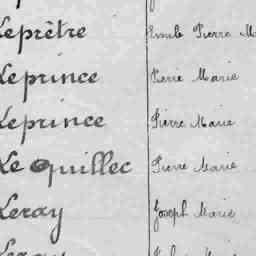 Leprêtre Emile Pierre
Leprince Pierre Marie
Leprince Pierre Marie
Le Quillec Pierre Marie
Leray Joseph Marie
Leray